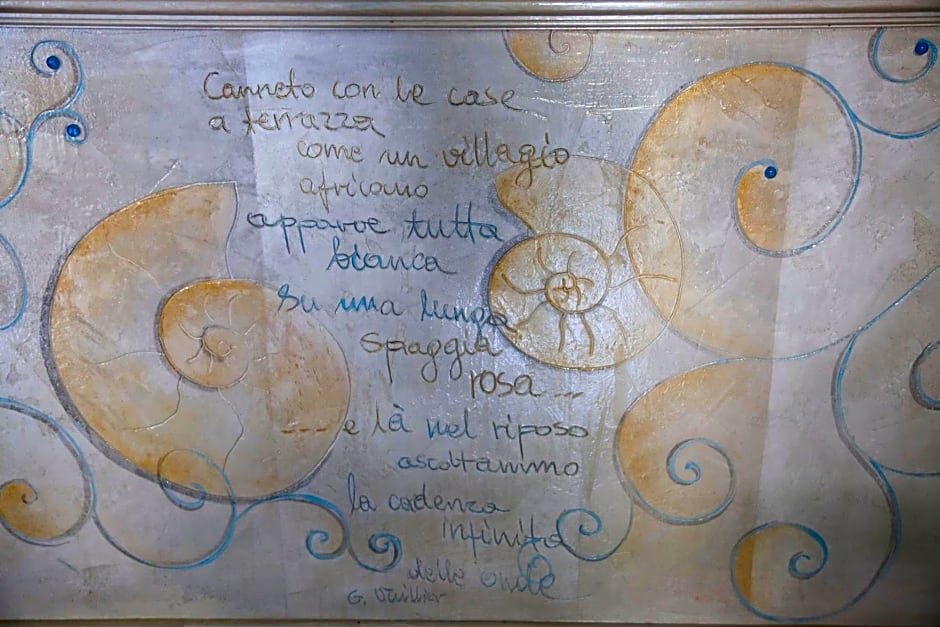 Canneto con le case
a terrazza
come un villagio
africano
apparve tutta
bianca
su una lunga
spiaggia
rosa ...
.... e là nel riposo
ascoltammo
la cadenza
infinita
delle onde
G. Vuillier